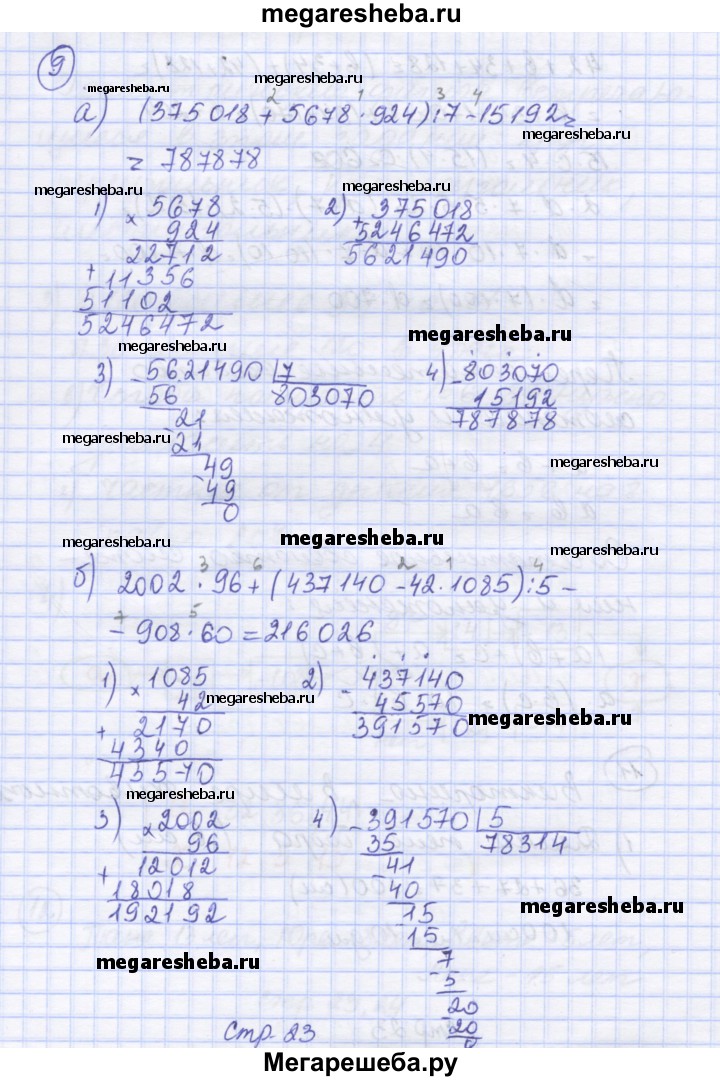 megaresheba.ru
9
megaresheba.ru
megaresheba.ru
2 1 3 4
а) (375018 + 5678 · 924) : 7 - 15192 =
= 787878
megaresheba.ru
megaresheba.ru
1) × 5678
924
22712
+ 11356
51102
5246472
2) + 375018
5246472
5621490
megaresheba.ru
megaresheba.ru
3) - 5621490 | 7
56 803070
- 21
21
- 49
49
0
4) - 803070
15192
787878
megaresheba.ru
megaresheba.ru
megaresheba.ru
megaresheba.ru
3 6 2 1 4
б) 2002 · 96 + (437140 - 42 · 1085) : 5 -
7 5
- 908 · 60 = 216026
1) × 1085
42
+ 2170
4340
45570
2) - 437140
45570
391570
megaresheba.ru
megaresheba.ru
megaresheba.ru
3) × 2002
96
+ 12012
18018
192192
4) - 391570 | 5
35 78314
- 41
40
- 15
15
7
- 5
- 20
20
0
megaresheba.ru
megaresheba.ru
стр 23
Мегарешеба.ру